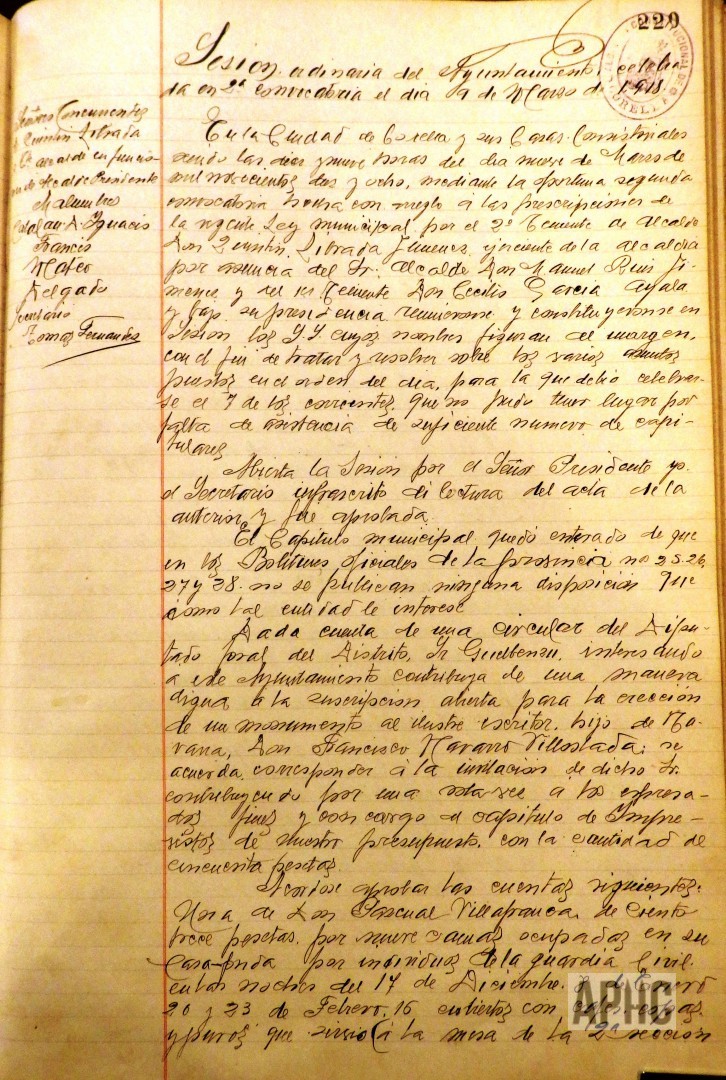 229
Sesion ordinaria del Ayuntamiento celebra-
da en 2ª convocatoria el dia 9 de Marzo de 1918.
Señores Concurrentes
Quintin Librada
Alcalde en funcio-
nes de Alcalde Presidente
Malumbre
Catalan D. Ignacio
Francés
Mateo
Delgado
Tomas Fernandez
En la Ciudad de Corella y sus Casas Consistoriales
siendo las diez y nueve horas del dia nueve de Marzo de
mil novecientos diez y ocho, mediante la oportuna segunda
convocatoria hecha con arreglo á las prescripciones de
la vigente Ley municipal por el 2º Teniente de Alcalde
Don Quintin Librada Jimenez, ejerciente de la alcaldia
por ausencia del Sr. Alcalde Don Manuel Ruiz Ji-
menez y del 1er Teniente Don Cecilio Garcia Ayala
y bajo su presidencia reunieronse y constituyeronse en
Sesion los S.S. cuyos nombres figuran al margen,
con el fin de tratar y resolver sobre los varios asuntos
puestos en el orden del dia, para la que debio celebrar-
se el 7 de los corrientes, que no pudo tener lugar por
falta de asistencia de suficiente numero de capi-
tulares
Abierta la Sesion por el Señor Presidente yo
el Secretario infrascrito di lectura del acta de la
anterior y fué aprobada.
El Capitulo municipal quedó enterado de que
en los Boletines oficiales de la provincia nos 25-26,
27 y 28 no se publican ninguna disposicion que
como tal entidad le interese
Dada cuenta de una circular del Dipu-
tado foral del Distrito, Sr Guelbenzu, interesando
a este Ayuntamiento contribuya de una manera
digna á la suscripcion abierta para la ereccion
de un monumento al ilustre escritor, hijo de Na-
varra, Don Francisco Navarro Villoslada; se
acuerda corresponder á la invitacion de dicho Sr.
contribuyendo por una sola vez a los expresa-
dos fines y con cargo al capitulo de Impre-
vistos de nuestro presupuesto con la cantidad de
cincuenta pesetas.
Acordose aprobar las cuentas siguientes:
Una de Don Pascual Villafranca, de ciento
trece pesetas, por nueve camas ocupadas en su
Casa-fonda por individuos de la guardia Civil
en las noches del 17 de Diciembre, Enero
20 y 23 de Febrero, 16 cubiertos con
y puros que sirvió á la mesa de la 2ª seccion
APHC